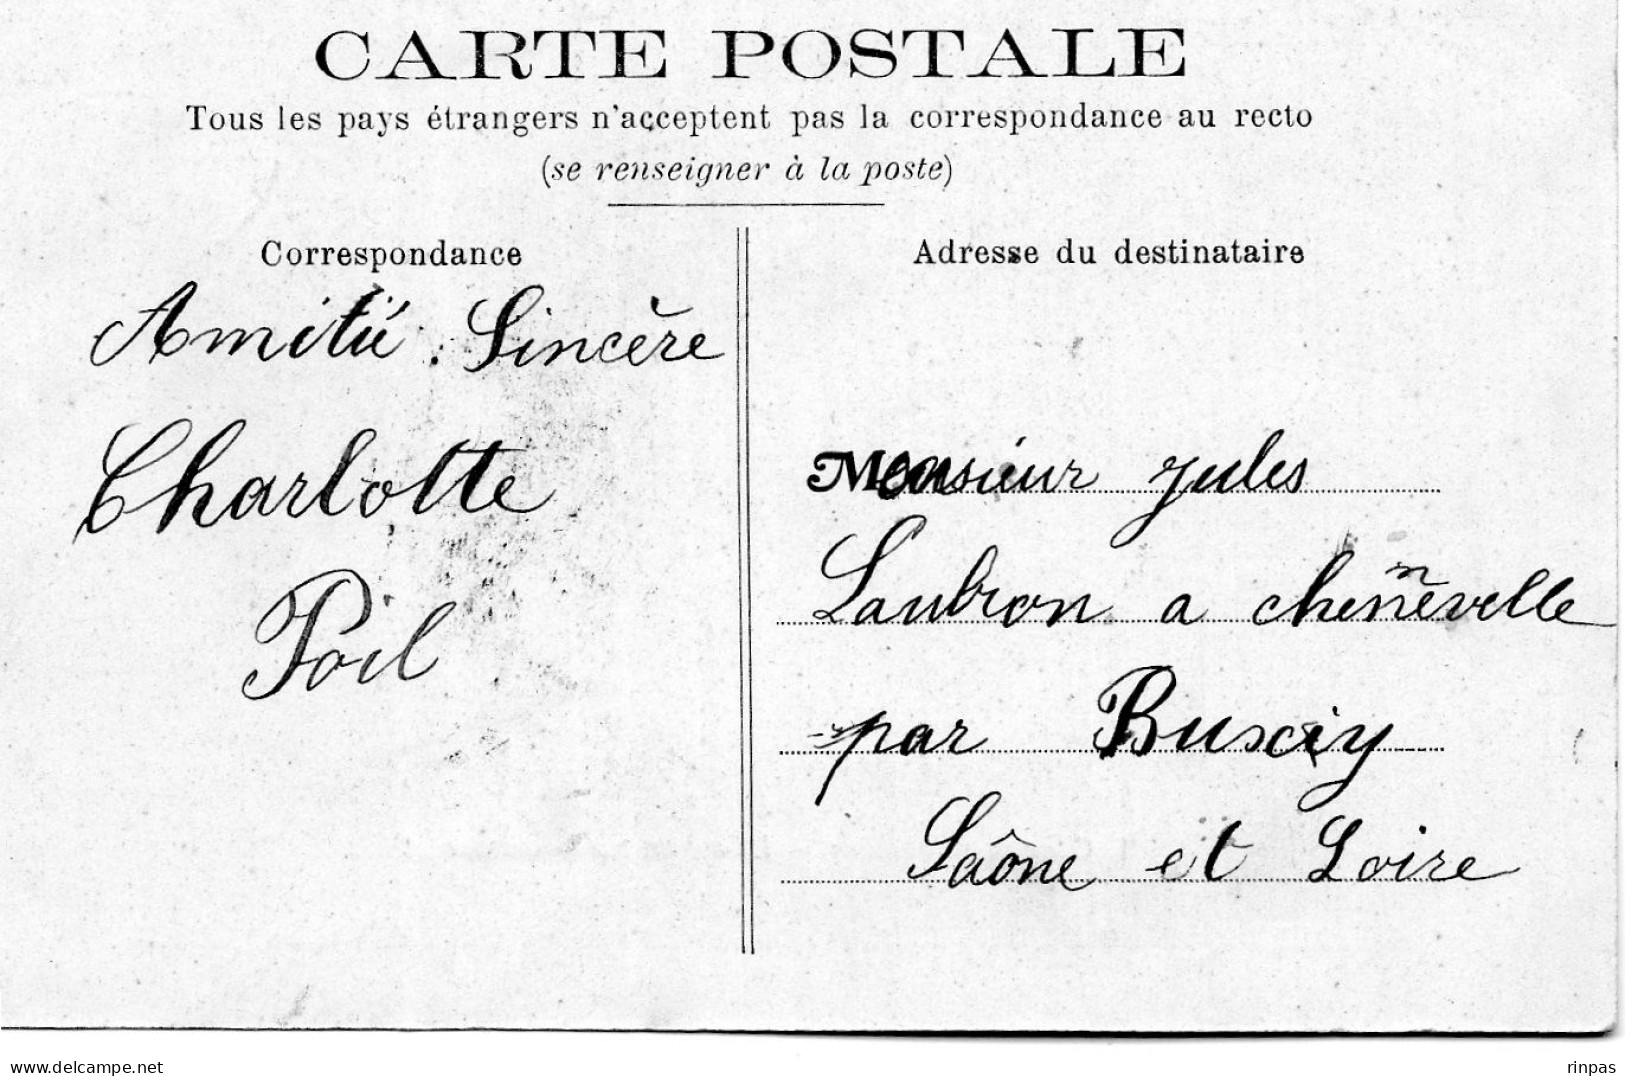 CARTE POSTALE
Tous les pays étrangers n'acceptent pas la correspondance au recto
(se renseigner à la poste)
Correspondance
Amitié. Sincère
Charlotte
Poil
Adresse du destinataire
Monsieur jules
Laubron a chennevelle
par Buxiy
Saône et Loire
https://www.delcampe.net
rinpas